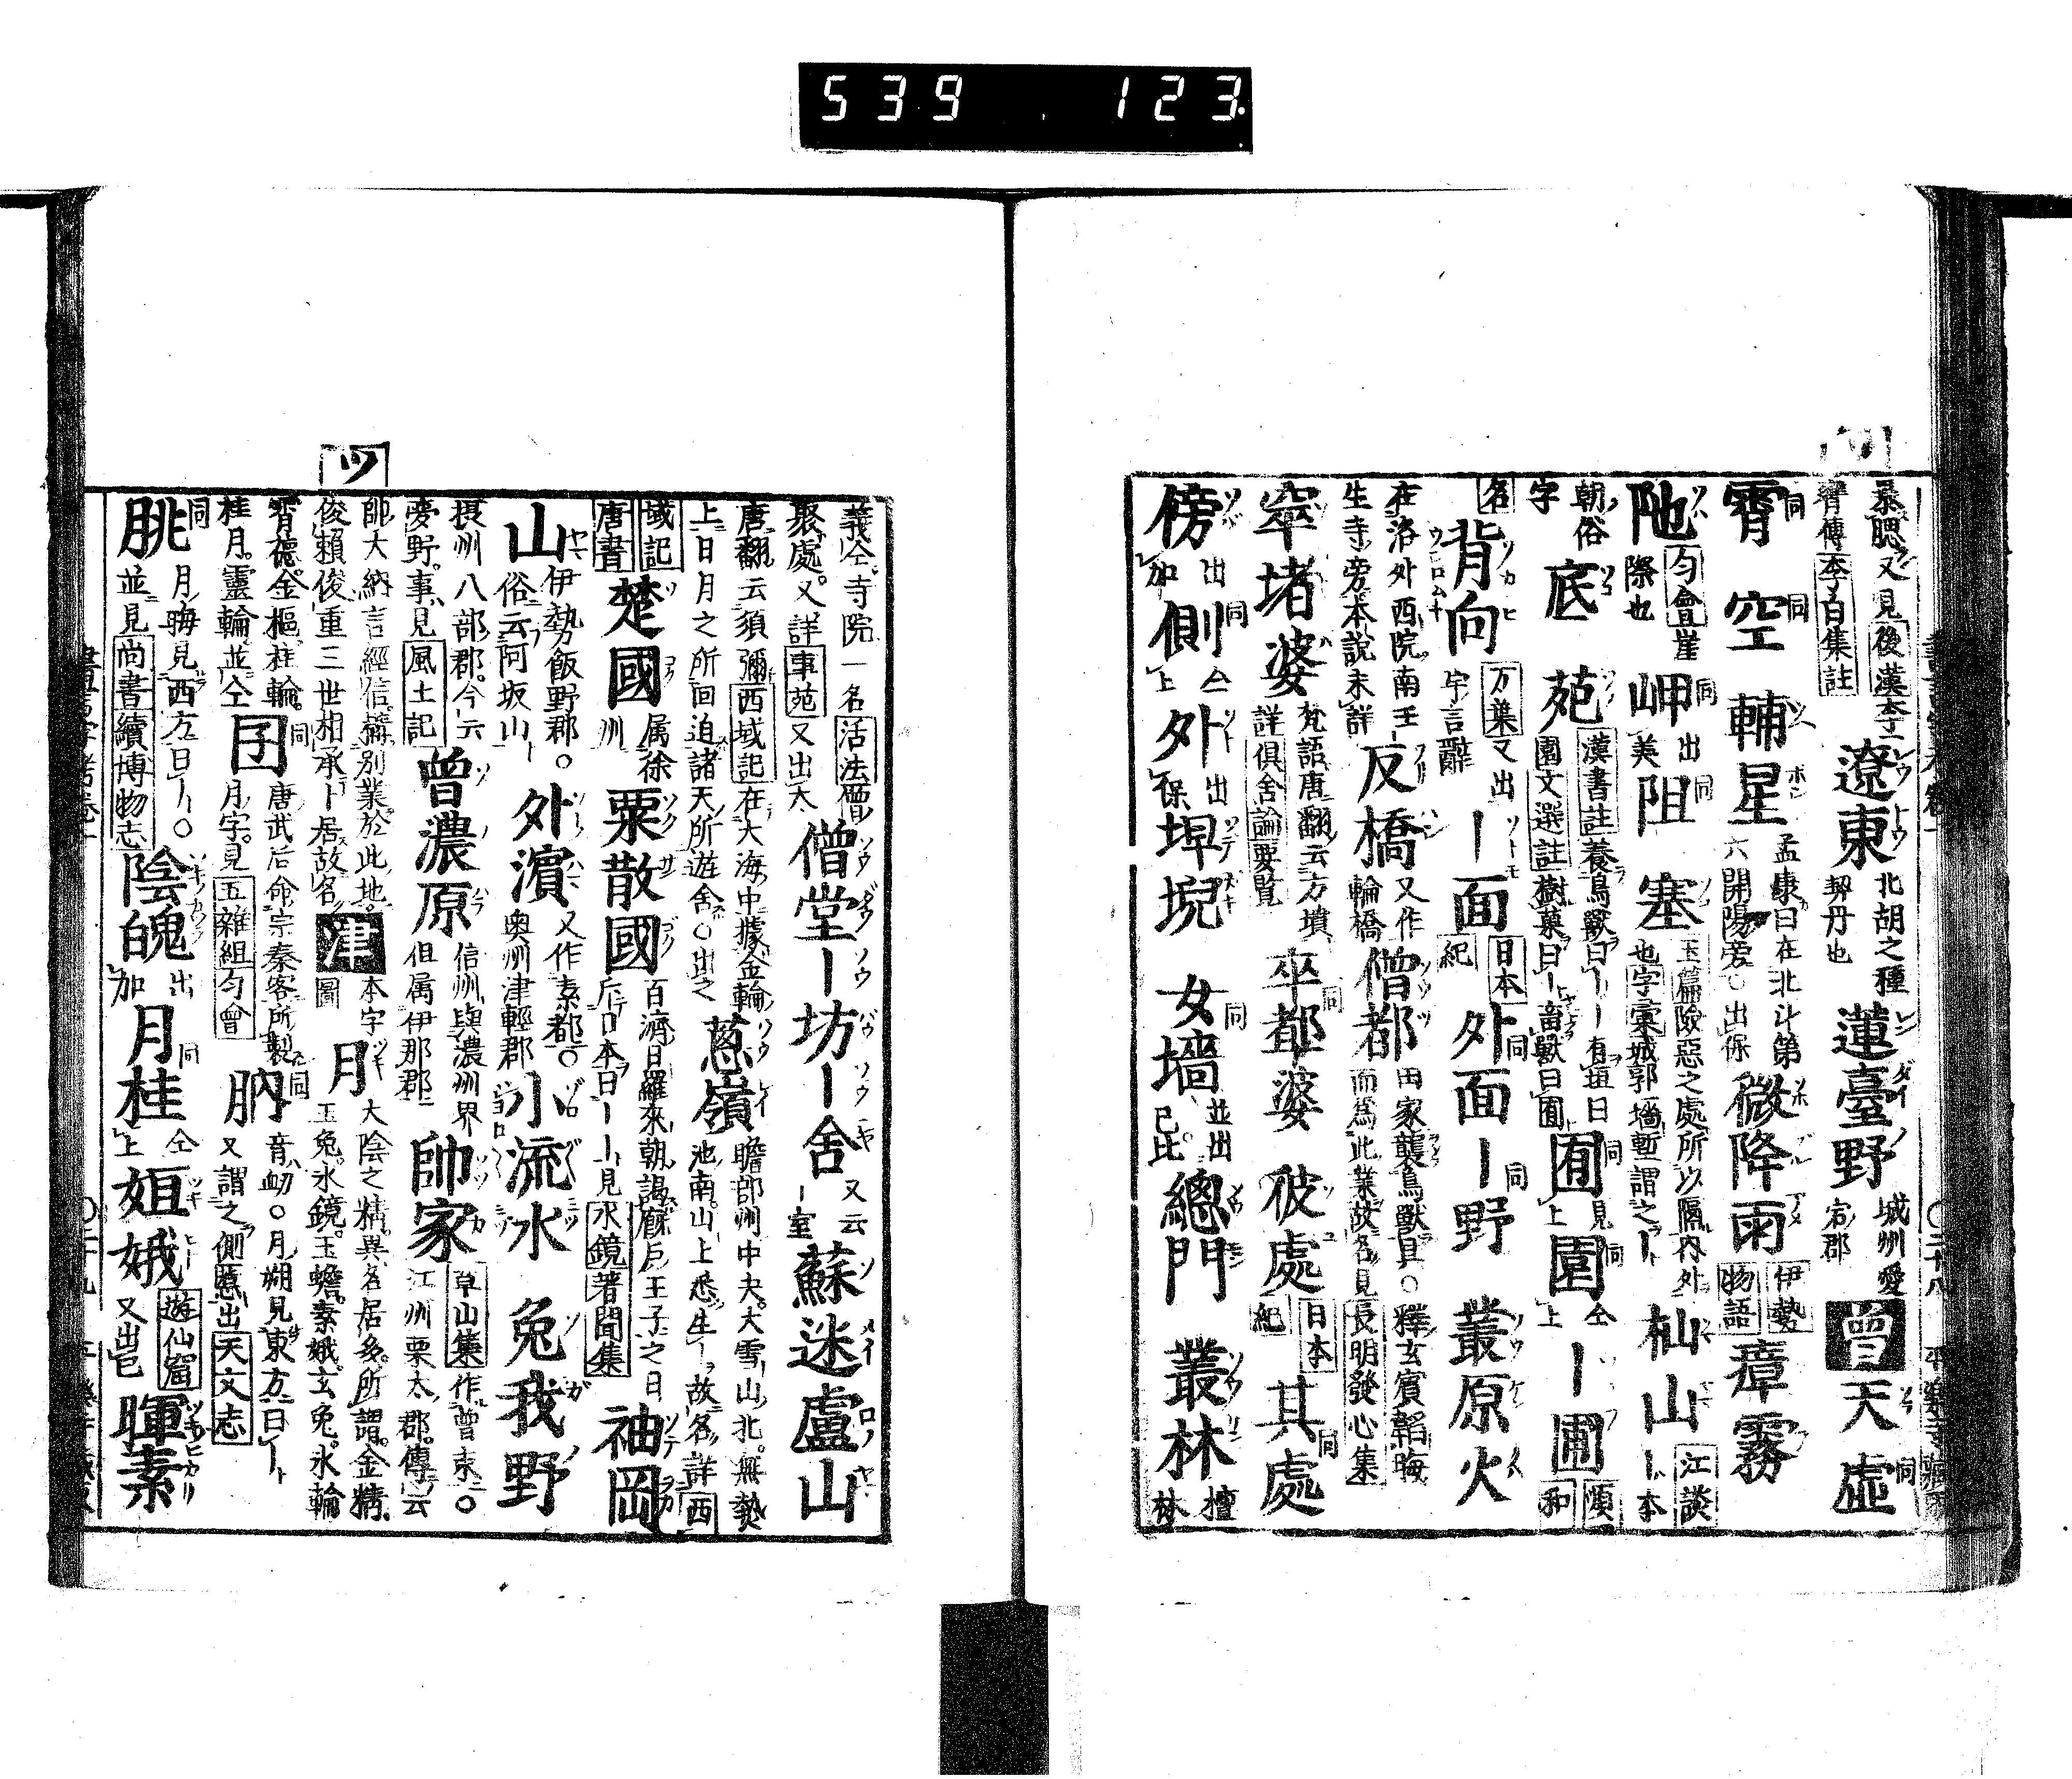 539 123
ソ
暴腮又見後漢李
膺傳李白集註
遼東
北胡之種
契丹也
蓮臺野
城州愛
宕郡
曾
天
虛同
霄同
空同
輔星
孟康曰在北斗第
六開陽旁○出保
微降雨
伊勢
物語
瘴霧
阤
匀會崖
際也
岬同
出
美
阻同
塞
玉篇險惡之處所以隔内外
也字彙城郭墻塹謂之ー
杣山
江談
ー本
朝俗
字
底
苑
漢書註養鳥獸曰ーー有垣曰
園文選註樹菓曰ー畜獸曰囿
囿同
見
上
園同
仝
上
ー圃
順
和
名
背向
万葉又出
宇言辭
ー面
日本
紀
外面同
ー野同
叢原火
在洛外西院南壬ー
生寺旁本說未詳
反橋
又作
輪橋
僧都
田家襲鳥獸具○釋玄賓韜晦
而爲此業故名見長明發心集
窣堵婆
梵語唐翻云方墳
詳俱舍論要覧
卒都婆同
彼處
日本
紀
其處同
傍
出
加
側同
仝
上
外
出
保
埤堄
女墻同
並出
巳比
總門
叢林
檀
林
義仝寺院一名活法
聚處又詳事苑又出太
僧堂
ー坊
ー舍
又云
ー室
蘇迷盧山
唐翻云須彌西域記在大海中據金輪
上日月之所回迫諸天所遊舍○出之
葱嶺
瞻部洲中央大雪山北無熱
池南山上悉生ー故名詳西
域記
唐書
楚國
属徐
州
粟散國
百濟日羅來朝謁廐戶王子之日
斥日本曰ーー見水鏡著聞集
袖岡
山
伊勢飯野郡○
俗云阿坂山
外濱
又作素都○
奥洲津輕郡
小流水
兔我野
摂州八部郡今云
夢野事見風土記
曾濃原
信州與濃州界
但属伊那郡
帥家
草山集作曾束○
江州栗太郡傳云
帥大納言經信搆別業於此地
俊賴俊重三世相承ト居故名
ツ
津
本字
圖
月
大陰之精異名居多所謂金精
玉兔氷鏡玉蟾素娥玄兔氷輪
霄德金樞桂輪
桂月靈輪並仝
囝同
唐武后命宗秦客所製
月字見五雜組匀會
朒同
音衄○月朔見東方曰ー
又謂之側慝出天文志
朓同
月晦見西方曰ー○
並見尚書續博物志
陰魄
出
加
月桂同
仝
上
姮娥
遊仙窟
又出巳
暉素